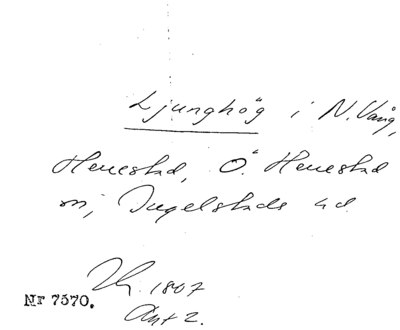 Ljunghög i N. Vång,
Herrestad, Ö. Herrestad
sn, Ingelstads hd.
Th. 1807
Akt 2.
Nr 7570.